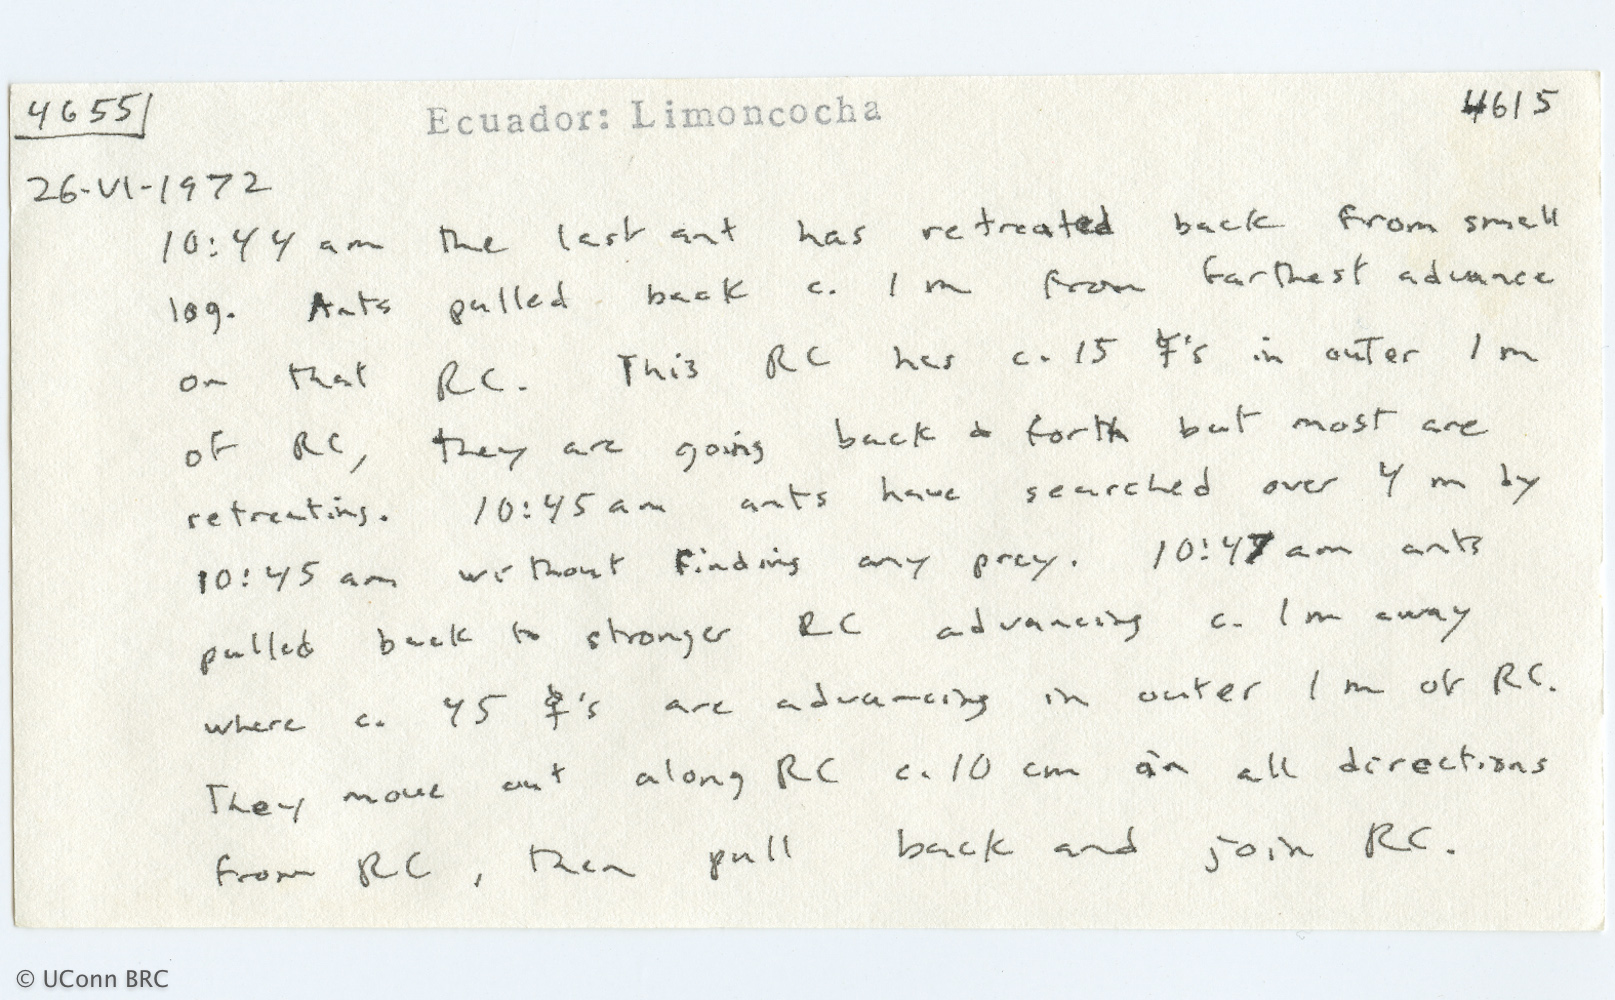 4655 Ecuador: Limoncocha 4615
26-VI-1972
10:44 am the last ant has retreated back from small
log. Ants pulled back c. 1 m from farthest advance
on that RC. This RC has c. 15 ☿'s in outer 1 m
of RC, they are going back & forth but most are
retreating. 10:45 am ants have searched over 4 m by
10:45 am without finding any prey. 10:47 am ants
pulled back to stronger RC advancing c. 1 m away
where c. 45 ☿'s are advancing in outer 1 m of RC.
They move out along RC c. 10 cm in all directions
from RC, then pull back and join RC.
© UConn BRC